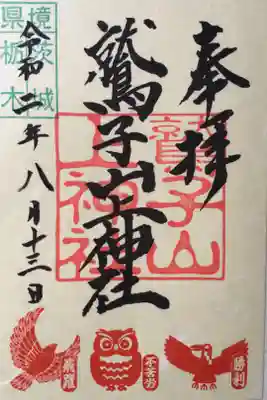 奉拝
鷲子山上神社
鷲子山
上神社
令和二年八月十三日
境茨城
県栃木
飛躍
不苦労
勝利